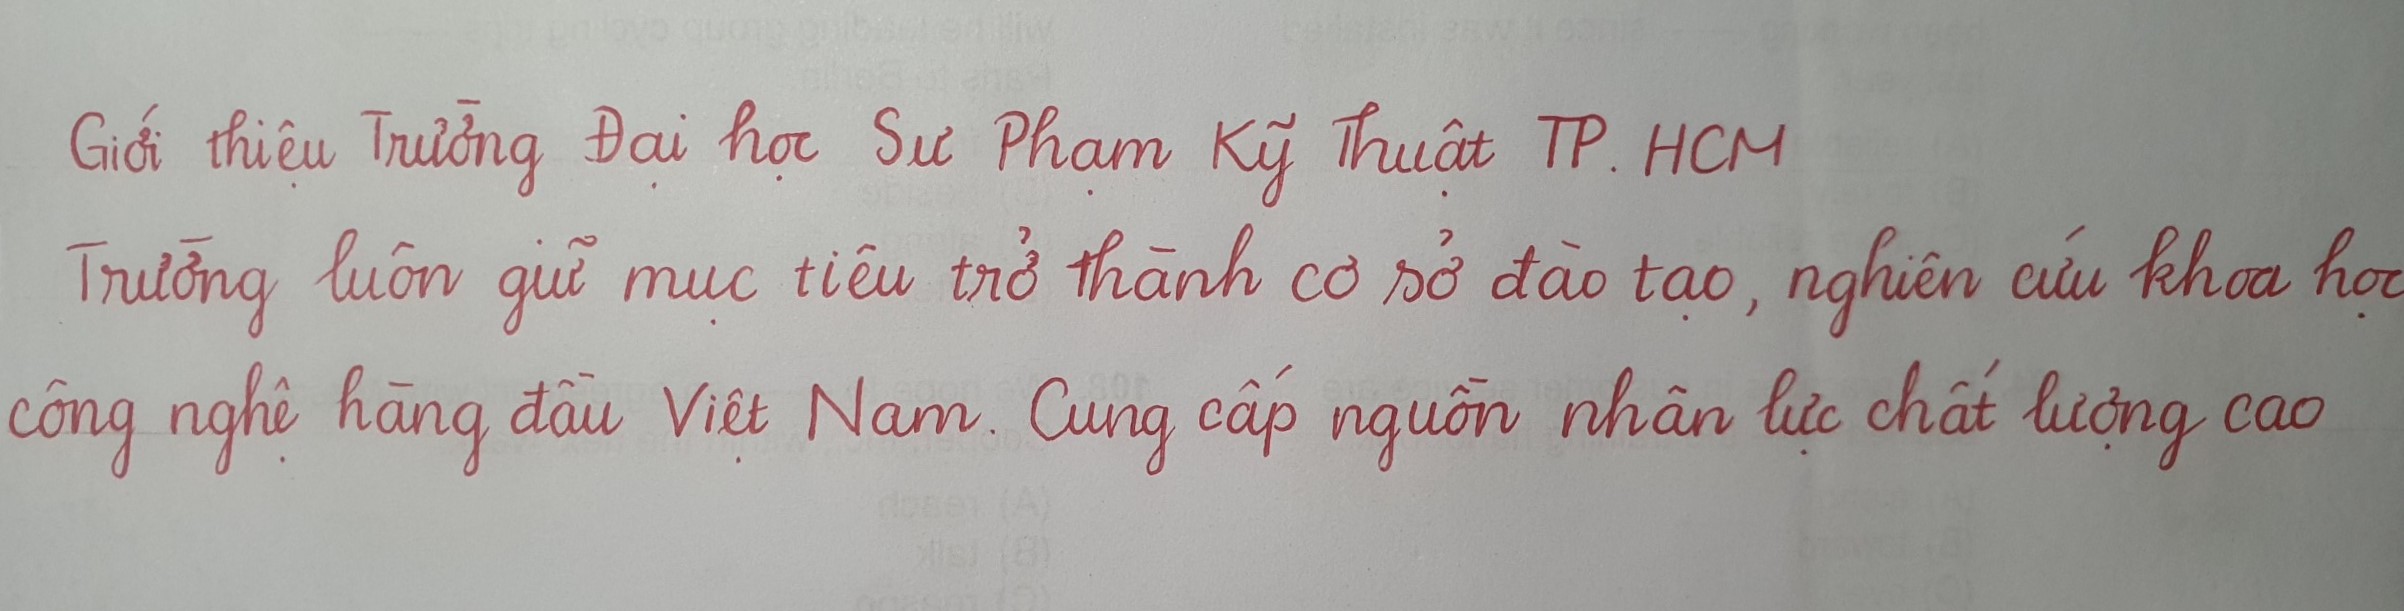 Giới thiệu Trường Đại học Sư Phạm Kỹ Thuật TP. HCM
Trường luôn giữ mục tiêu trở thành cơ sở đào tạo, nghiên cứu khoa học
công nghệ hàng đầu Việt Nam. Cung cấp nguồn nhân lực chất lượng cao